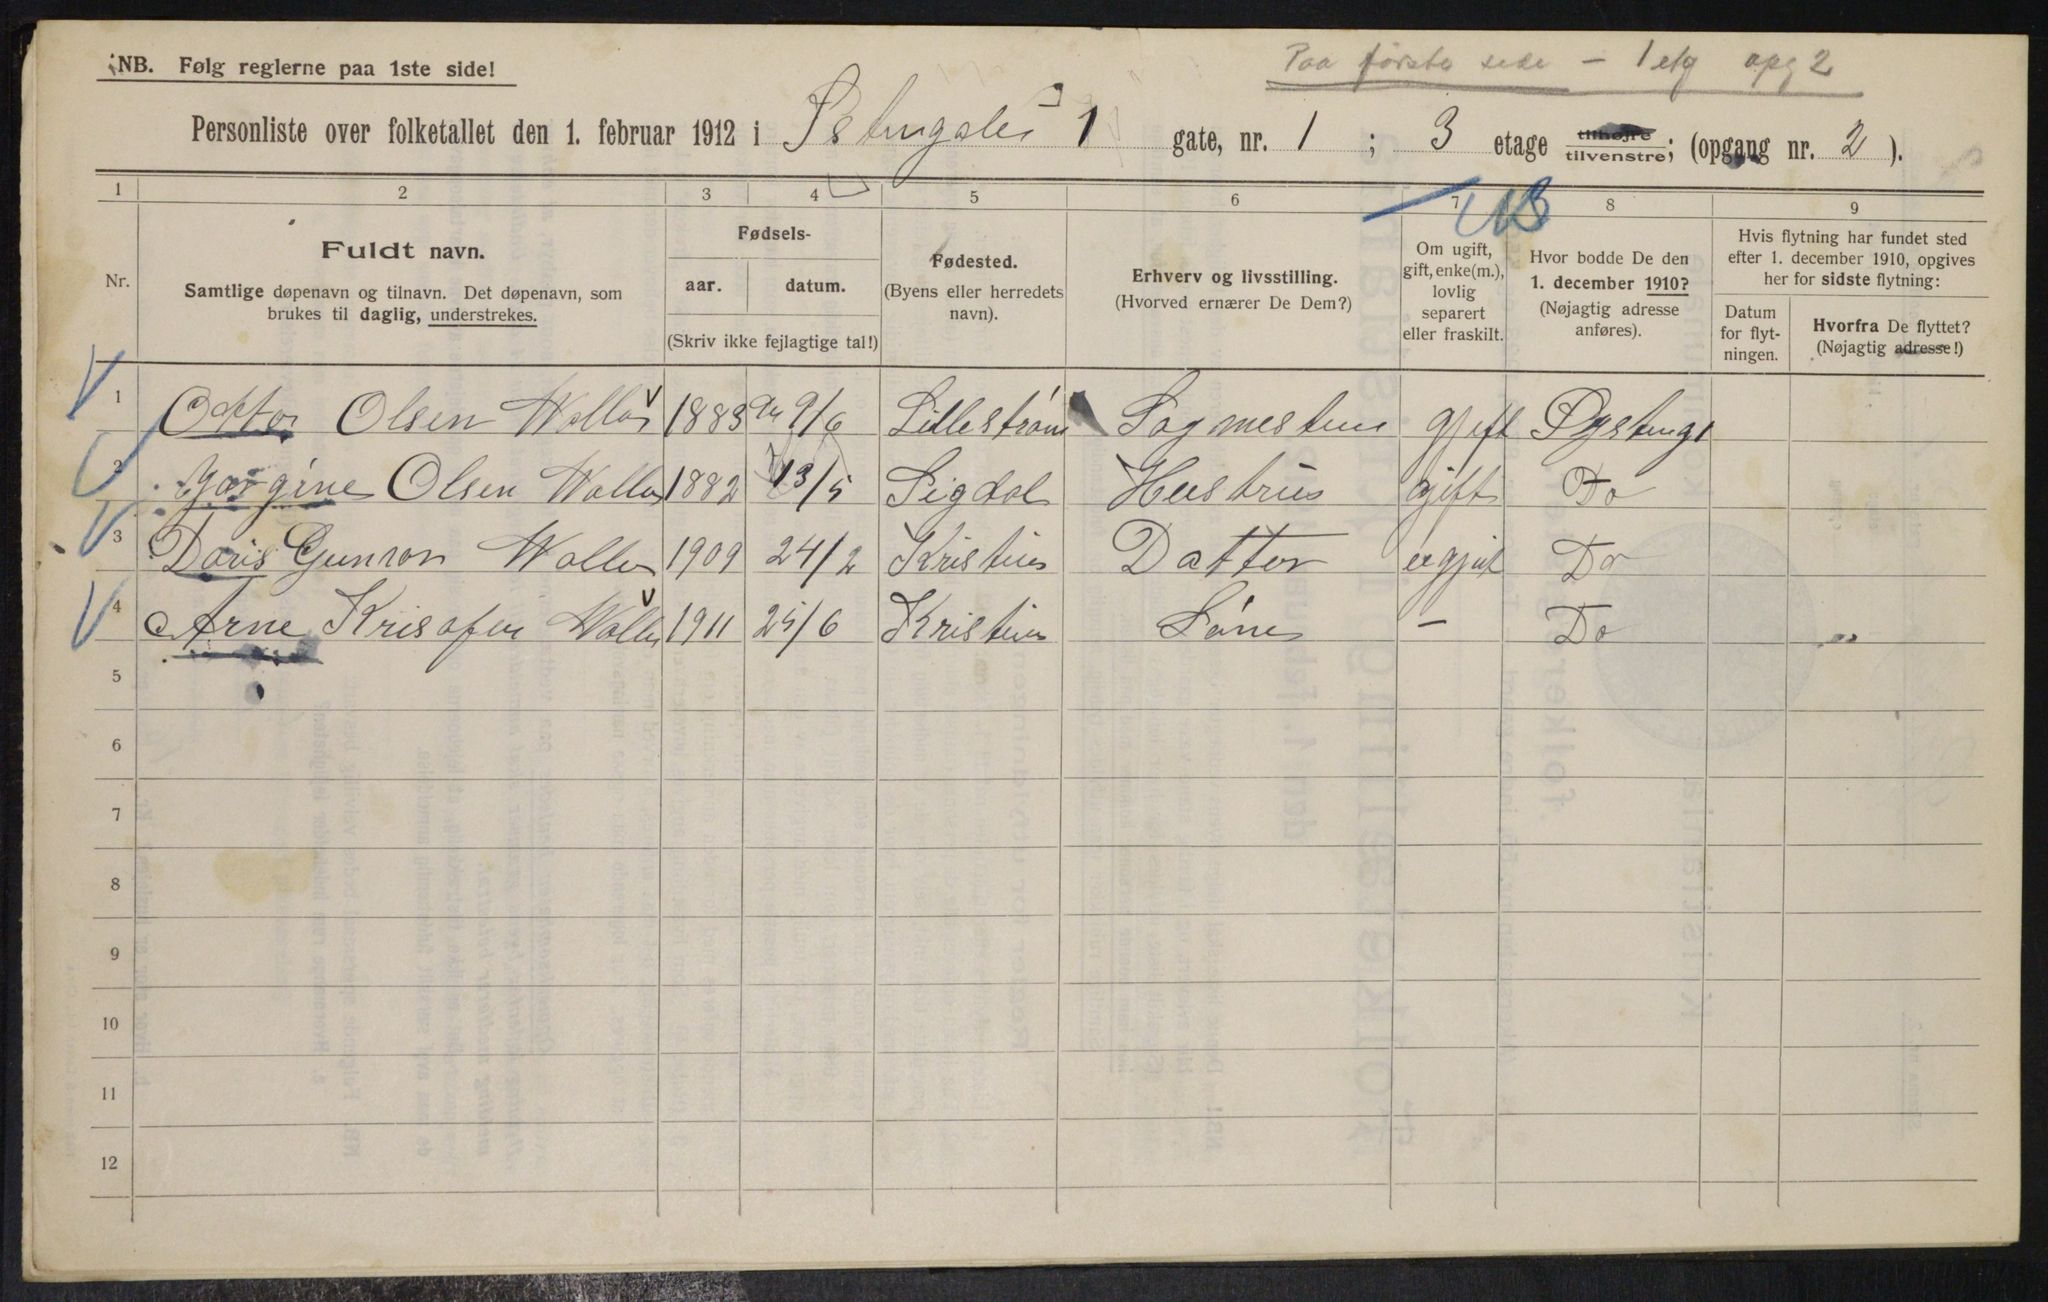 NB. Følg reglerne paa 1ste side!
Paa første side — 1 etg opg 2
Personliste over folketallet den 1. februar 1912 i 1 gate, nr. 1 ; 3 etage tilhøjre tilvenstre; (opgang nr. 2 ).
1 2 3 4 5 6 7 8 9
NB
Nr.
Fuldt navn.
Samtlige døpenavn og tilnavn. Det døpenavn, som
brukes til daglig, understrekes.
Fødsels-
aar. datum.
(Skriv ikke fejlagtige tal!)
Fødested.
(Byens eller herredets
navn).
Erhverv og livsstilling.
(Hvorved ernærer De Dem?)
Om ugift,
gift, enke(m.),
lovlig
separert
eller fraskilt.
Hvor bodde De den
1. december 1910?
(Nøjagtig adresse
anføres).
Hvis flytning har fundet sted
efter 1. december 1910, opgives
her for sidste flytning:
Datum
for flyt-
ningen.
Hvorfra De flyttet?
(Nøjagtig adresse!)
1 Ottor Olsen 1883 9/6 Lillestrøm gjift
2 Olsen 1882 13/5 Sigdal Hustru gift Do
3 Doris Gunvor 1909 24/2 Kristian Datter Do
4 Arne Krisofer 1911 25/6 Kristian Søn — Do
5
6
7
8
9
10
11
12